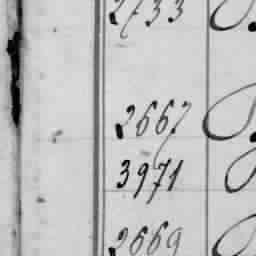 2733
2667
3971
2669